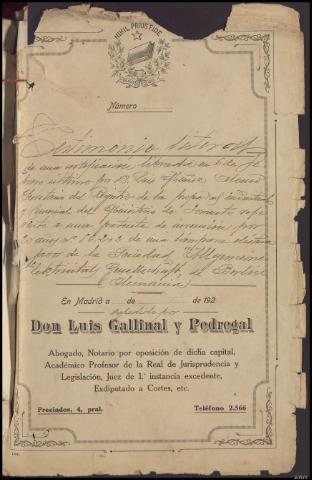 NIHIL PRIUS FIDE
Número
Testimonio literal
de una certificación librada en 6 de
último por D.
Secretario del Registro de la propiedad industrial
y Comercial del Ministerio de Fomento
a una patente de invención por
años nº 16.203 de una lampara electrica
por de la Sociedad Allgemeine
Gesellschaft, de Berlin
(Alemania)
En Madrid a de de 192
expedido por
Don Luis Gallinal y Pedregal
Abogado, Notario por oposición de dicha capital,
Académico Profesor de la Real de Jurisprudencia y
Legislación, Juez de 1.ª instancia excedente,
Exdiputado a Cortes, etc.
Preciados, 4, pral. Teléfono 2.566